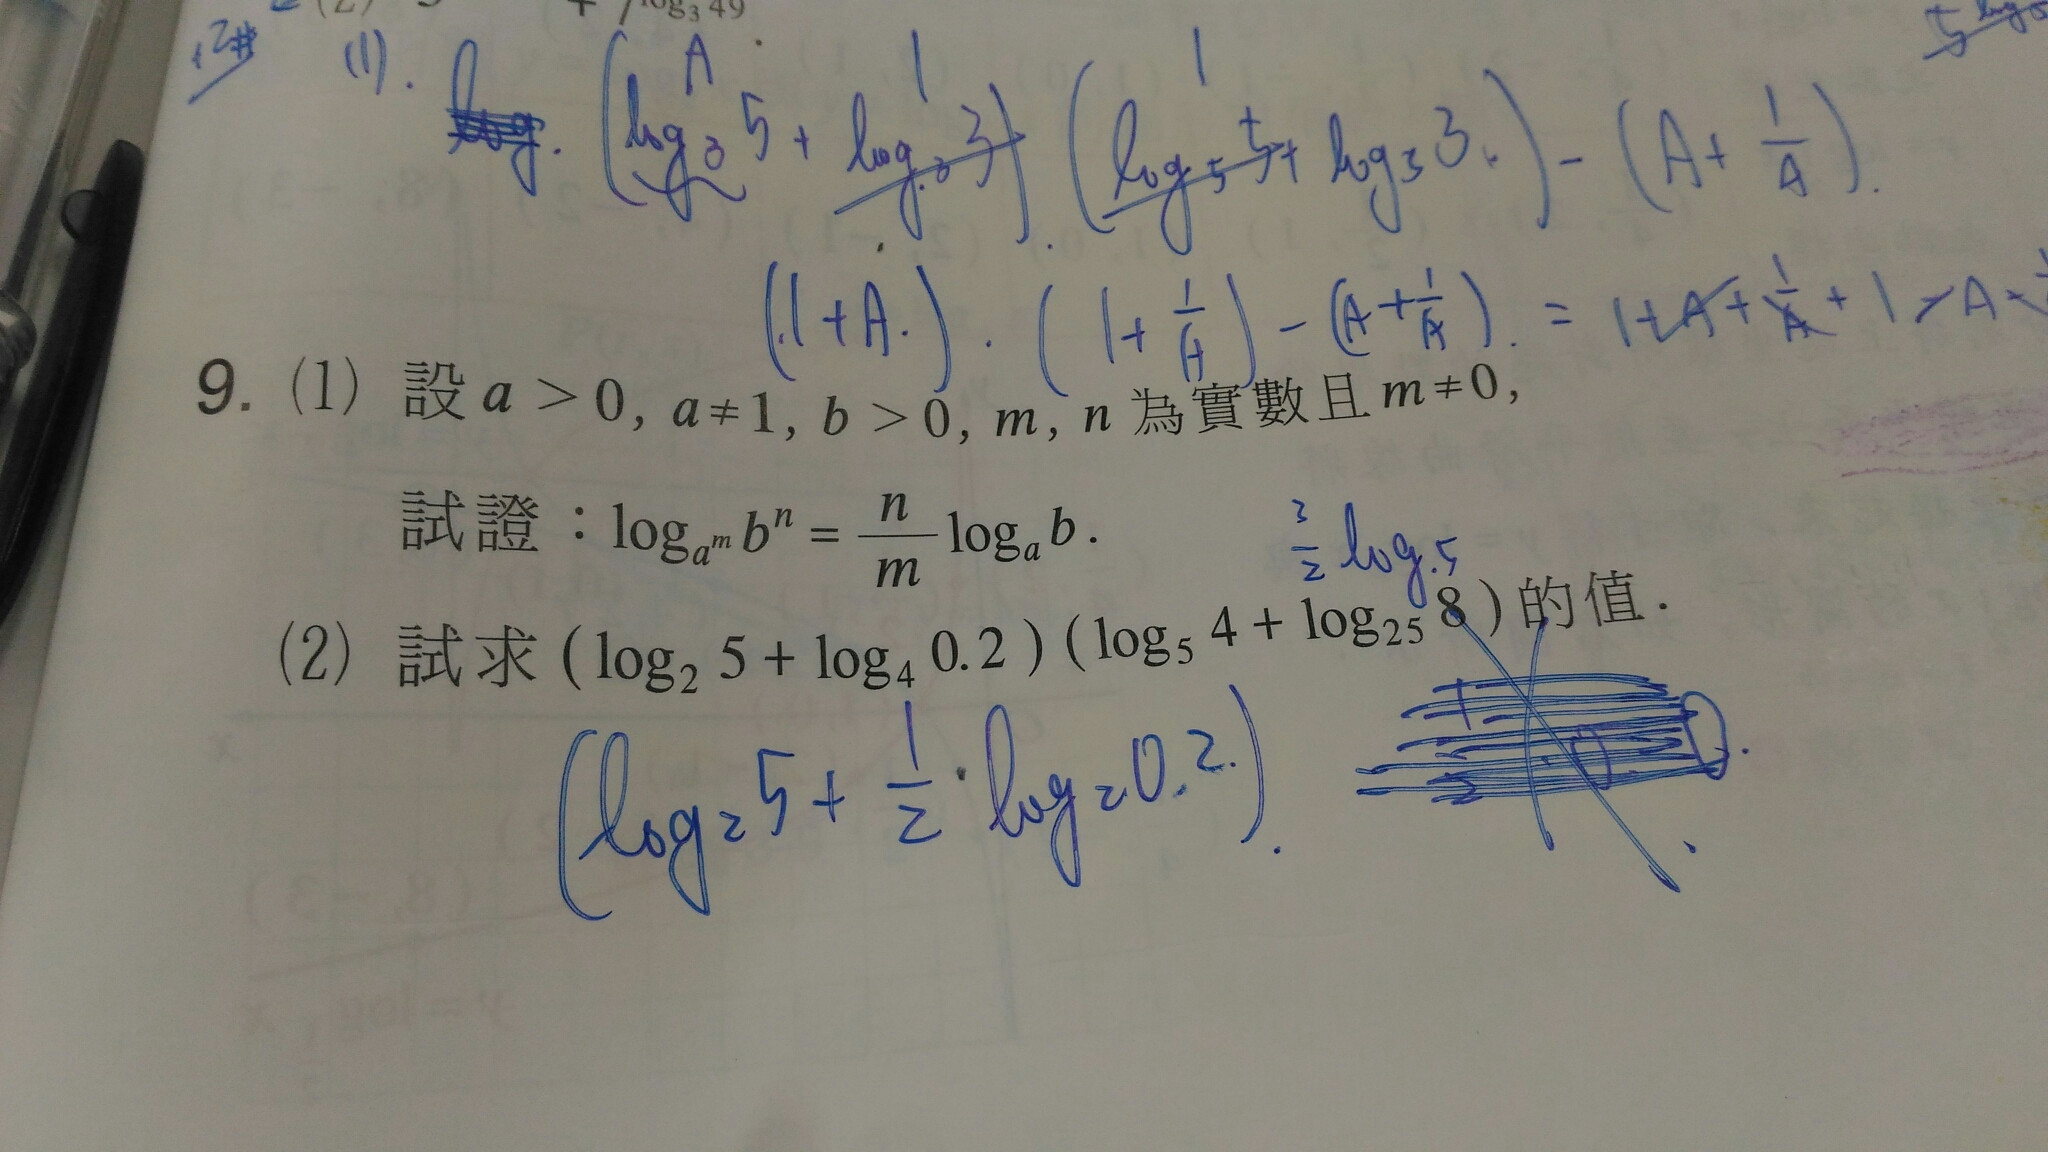 log₃ 49
(1). (log₃ 5 + log₃ 3) . (log₅ 5 + log₅ 3.) - (A + 1/A).
A 1 1
(1 + A.) . (1 + 1/A) - (A + 1/A). = 1 + A + 1/A + 1 - A -
9. (1) 設 a > 0, a ≠ 1, b > 0, m, n 為實數且 m ≠ 0,
試證：log_{a^m} b^n = n/m log_a b.
3/2 log.5
(2) 試求 (log₂ 5 + log₄ 0.2) (log₅ 4 + log₂₅ 8) 的值.
(log₂ 5 + 1/2 · log₂ 0.2.) .